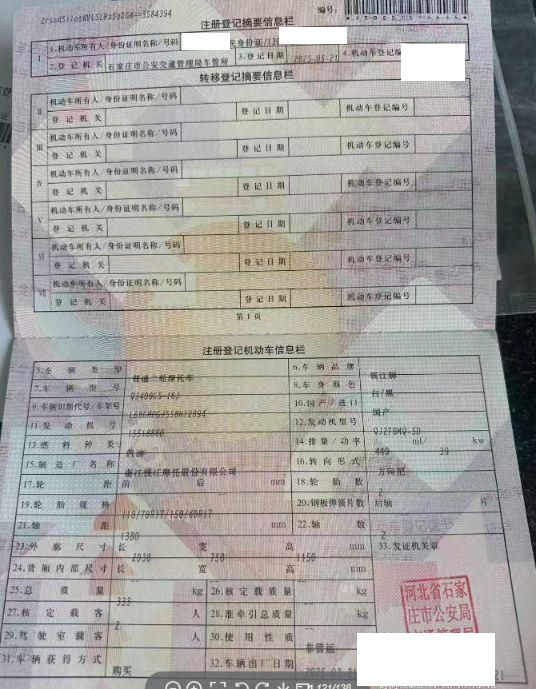 注册登记摘要信息栏
编号:
I 1.机动车所有人/身份证明名称/号码
2.登记机关 石家庄市公安交通管理局车管所 3.登记日期 2025-05-21 4.机动车登记编号
转移登记摘要信息栏
II 机动车所有人/身份证明名称/号码
登记机关 登记日期 机动车登记编号
III 机动车所有人/身份证明名称/号码
登记机关 登记日期 机动车登记编号
IV 机动车所有人/身份证明名称/号码
登记机关 登记日期 机动车登记编号
V 机动车所有人/身份证明名称/号码
登记机关 登记日期 机动车登记编号
VI 机动车所有人/身份证明名称/号码
登记机关 登记日期 机动车登记编号
VII 机动车所有人/身份证明名称/号码
登记机关 登记日期 机动车登记编号
第1页
注册登记机动车信息栏
5.车辆类型 普通二轮摩托车 6.车辆品牌 钱江牌
7.车辆型号 8.车身颜色 白/黑
9.车辆识别代号/车架号 10.国产/进口 国产
11.发动机号 12.发动机型号
13.燃料种类 汽油 14.排量/功率 449 ml/ 39 kw
15.制造厂名称 浙江钱江摩托股份有限公司 16.转向形式 方向把
17.轮距 前 后 mm 18.轮胎数 2
19.轮胎规格 110/70R17/150/60R17 20.钢板弹簧片数 后轴 片
21.轴距 1380 mm 22.轴数 2
23.外廓尺寸 长 2030 宽 750 高 1150 mm 33.发证机关章
24.货厢内部尺寸 长 宽 高 mm
25.总质量 333 kg 26.核定载质量 kg
27.核定载客 2 人 28.准牵引总质量 kg
29.驾驶室载客 人 30.使用性质 非营运
31.车辆获得方式 购买 32.车辆出厂日期
河北省石家
庄市公安局